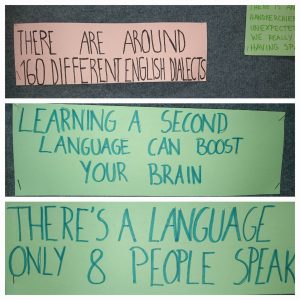 THERE ARE AROUND
160 DIFFERENT ENGLISH DIALECTS
THERE IS AN
UNEXPECTED
WE REALLY
HAVING
LEARNING A SECOND
LANGUAGE CAN BOOST
YOUR BRAIN
THERE'S A LANGUAGE
ONLY 8 PEOPLE SPEAK